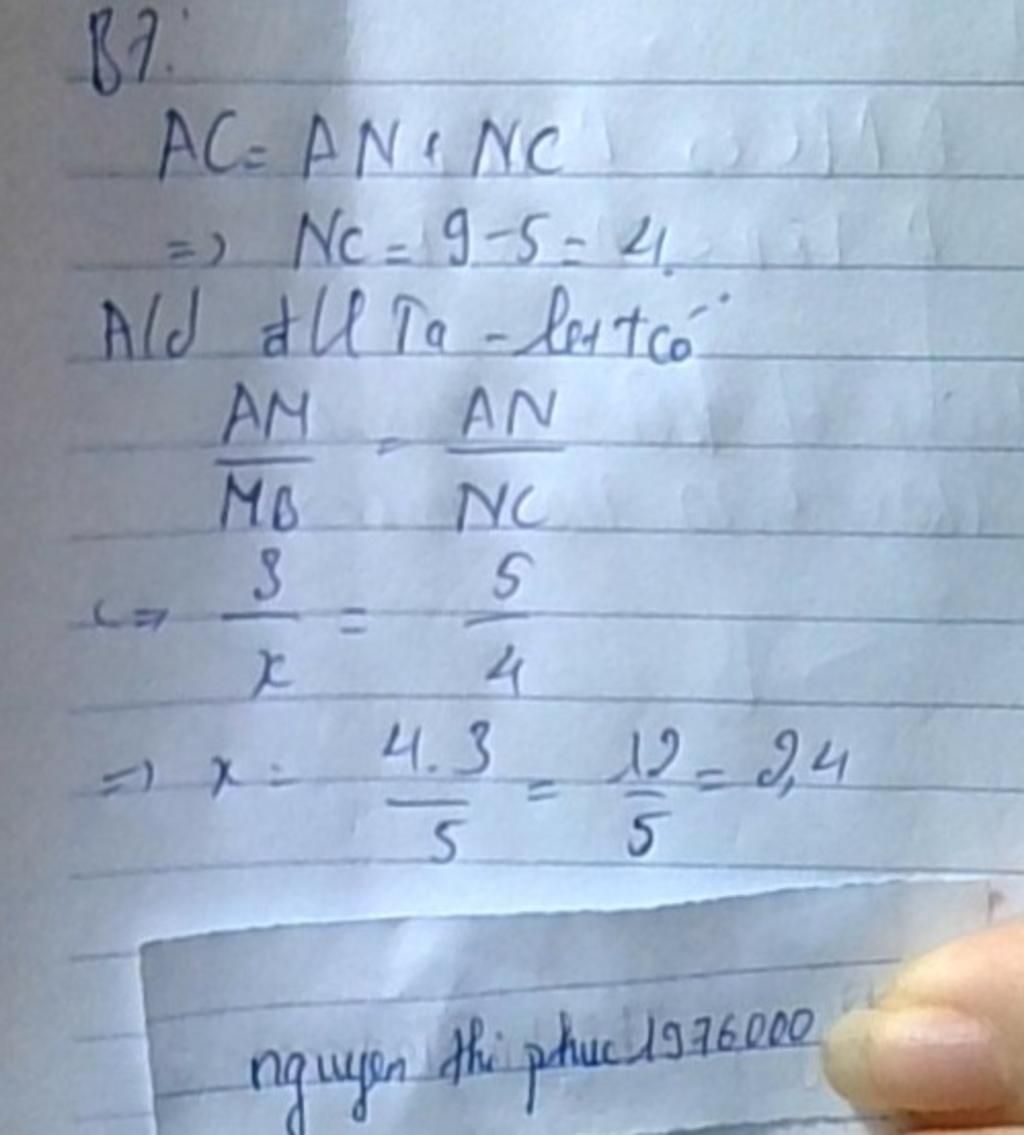 B7:
AC = AN + NC
=> NC = 9 - 5 = 4.
A/d đ/l Ta - let t có
AM/MB = AN/NC
<=> 3/x = 5/4
=> x = 4.3/5 = 12/5 = 2,4
nguyen thi phuc1976000